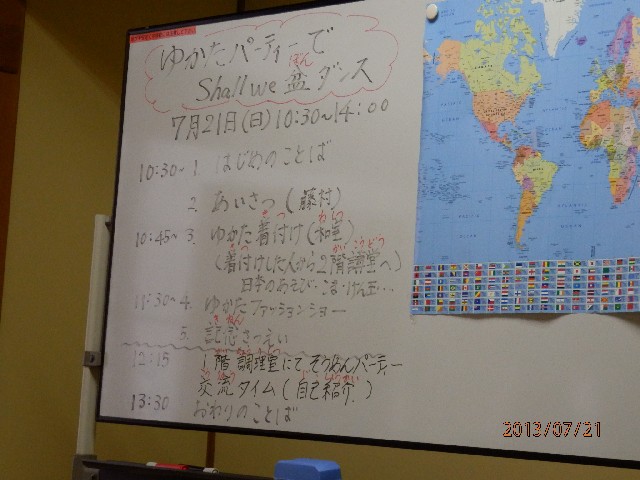 ゆかたパーティーで
ぼん
Shall we 盆 ダンス
7月21日(日)10:30~14:00
10:30~ 1. はじめのことば
2. あいさつ(藤村)
きつ わしつ
10:45~ 3. ゆかた着付け(和室)
(着付けした人から2階講堂へ)
日本のあそび・こま・けん玉…
11:30~ 4. ゆかたファッションショー
きねん
5. 記念さつえい
12:15 1階調理室にてそうめんパーティー
交流タイム(自己紹介)
13:30 おわりのことば
2013/07/21